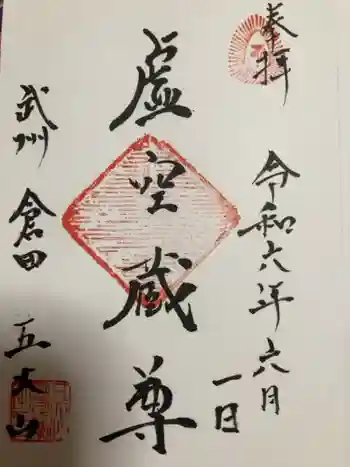 奉拝
令和六年六月
一日
虚空蔵尊
武州 倉田 五大山